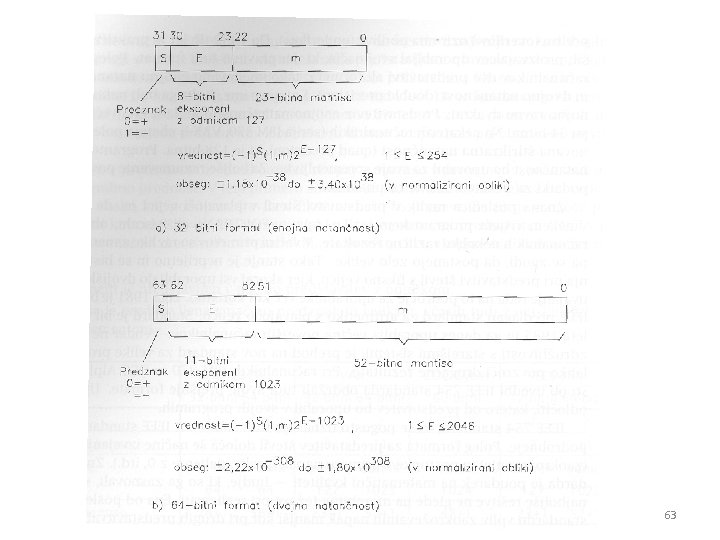 31 30 23 22 0
S E m
Predznak 8-bitni 23-bitna mantisa
0=+ eksponent
1=– z odmikom 127
vrednost=(-1)^S(1,m)2^E-127, 1 ≤ E ≤ 254
obseg: ±1,18x10^-38 do ±3,40x10^38 (v normalizirani obliki)
a) 32 bitni format (enojna natančnost)
63 62 52 51 0
S E m
11-bitni 52-bitna mantisa
Predznak eksponent
0=+ z odmikom 1023
1=–
vrednost=(-1)^S(1,m)2^E-1023, 1 ≤ E ≤2046
obseg: ±2,22x10^-308 do ±1,80x10^308 (v normalizirani obliki)
b) 64-bitni format (dvojna natančnost)
63